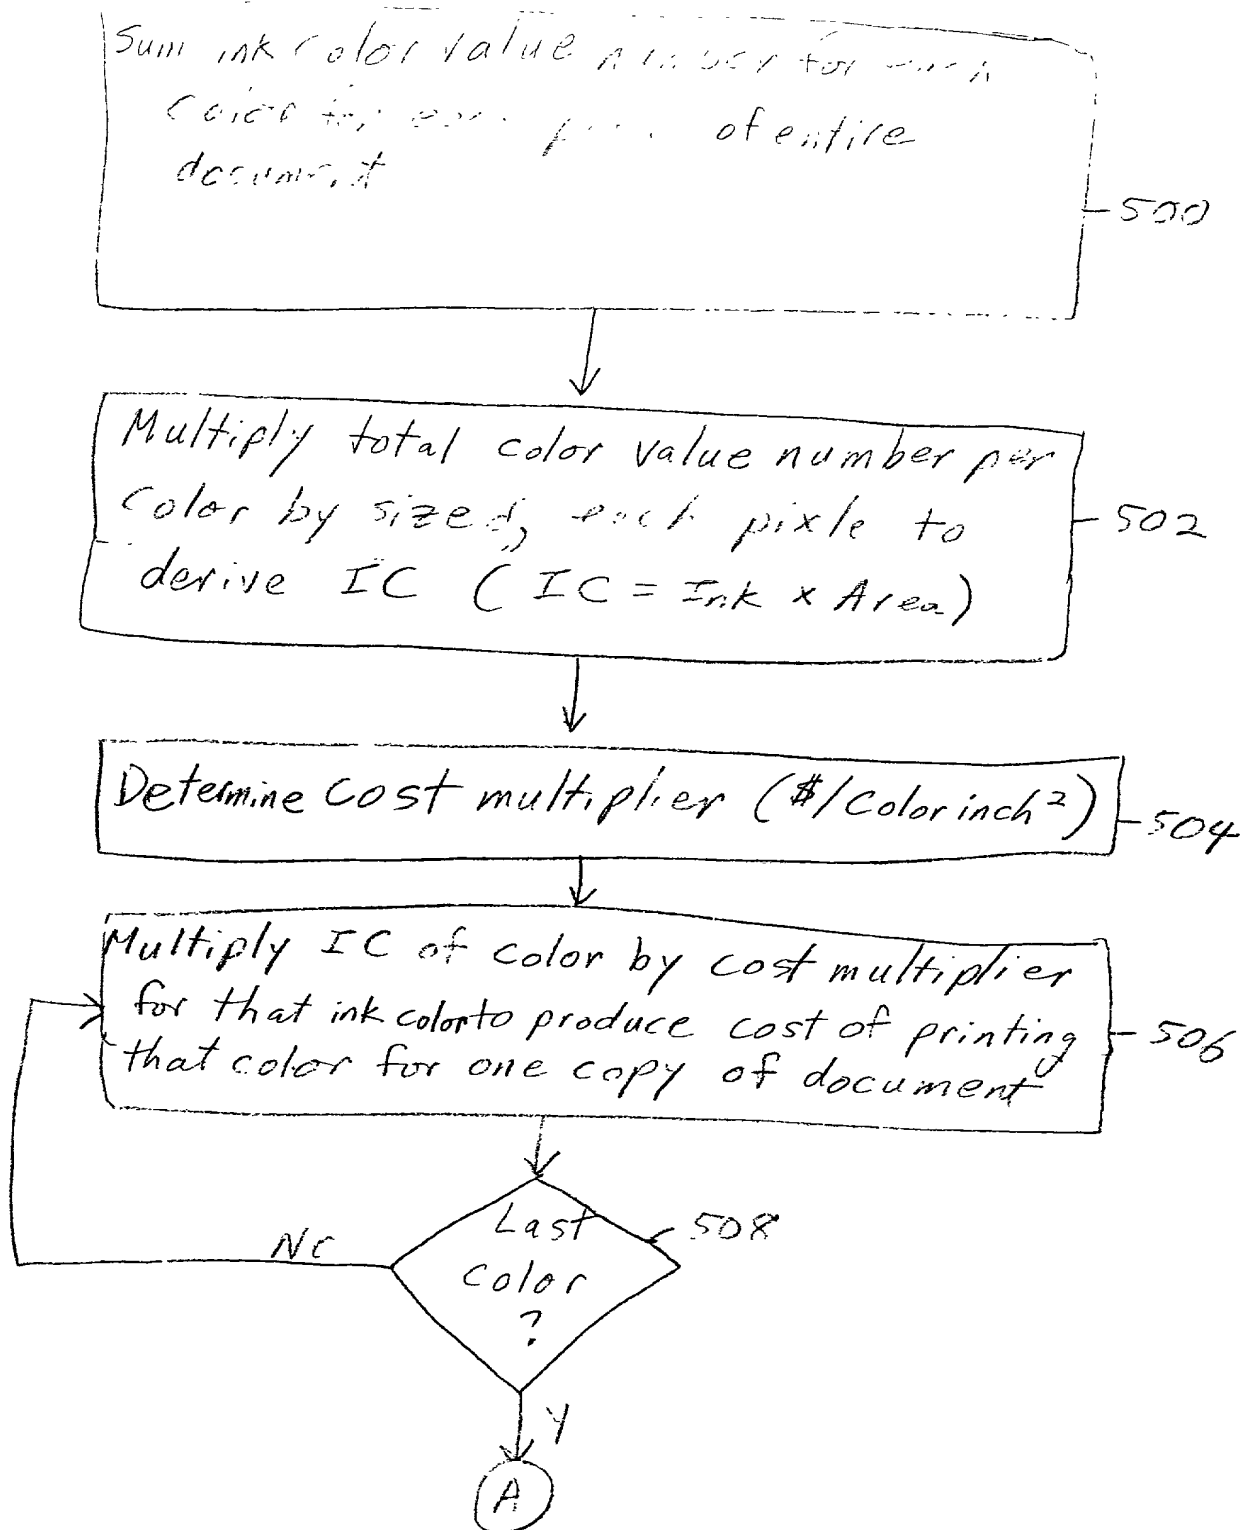 Sum ink color value number for each
color for each of entire
document
500
Multiply total color value number per
color by size of each pixle to
derive IC (IC = Ink x Area)
502
Determine cost multiplier ($/color inch²)
504
Multiply IC of color by cost multiplier
for that ink color to produce cost of printing
that color for one copy of document
506
Last
color
?
508
No
Y
A